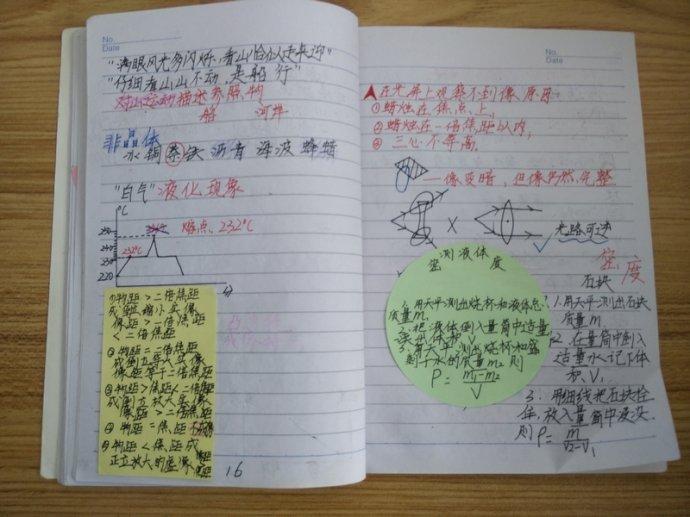 No.
Date
"满眼风光多闪烁,看山恰似走来迎"
"仔细看山山不动,是船行"
描述参照物
船 河岸
非晶体
水 铜 萘 铁 沥青 海波 蜂蜡
"白气"液化现象
℃
熔点,232℃
232℃
250
240
230
220
①物距>二倍焦距
成倒立缩小实像
像距>一倍焦距
<二倍焦距
②物距=二倍焦距
成倒立等大实像
像距等于二倍焦距
③物距>焦距<二倍焦距
成倒立放大实像
像距>二倍焦距
④物距=焦距
⑤物距<焦距成
正立放大的虚像
16
No.
Date
在光屏上观察不到像原因:
①蜡烛在焦点上,
②蜡烛在一倍焦距以内,
③三心不等高,
—像变暗,但像仍然完整
光路可逆
测液体密度
1.用天平测出烧杯和液体总
质量m
2.把液体倒入量筒中适量
3.用天平测出烧杯和
的质量m₂则
ρ=(m₁-m₂)/V
密度
石块
1.用天平测出石块
质量m
2.在量筒中倒入
适量水记下体
积V₁
3.用细线把石块拴
住,放入量筒中浸没
则ρ=m/(V₂-V₁)